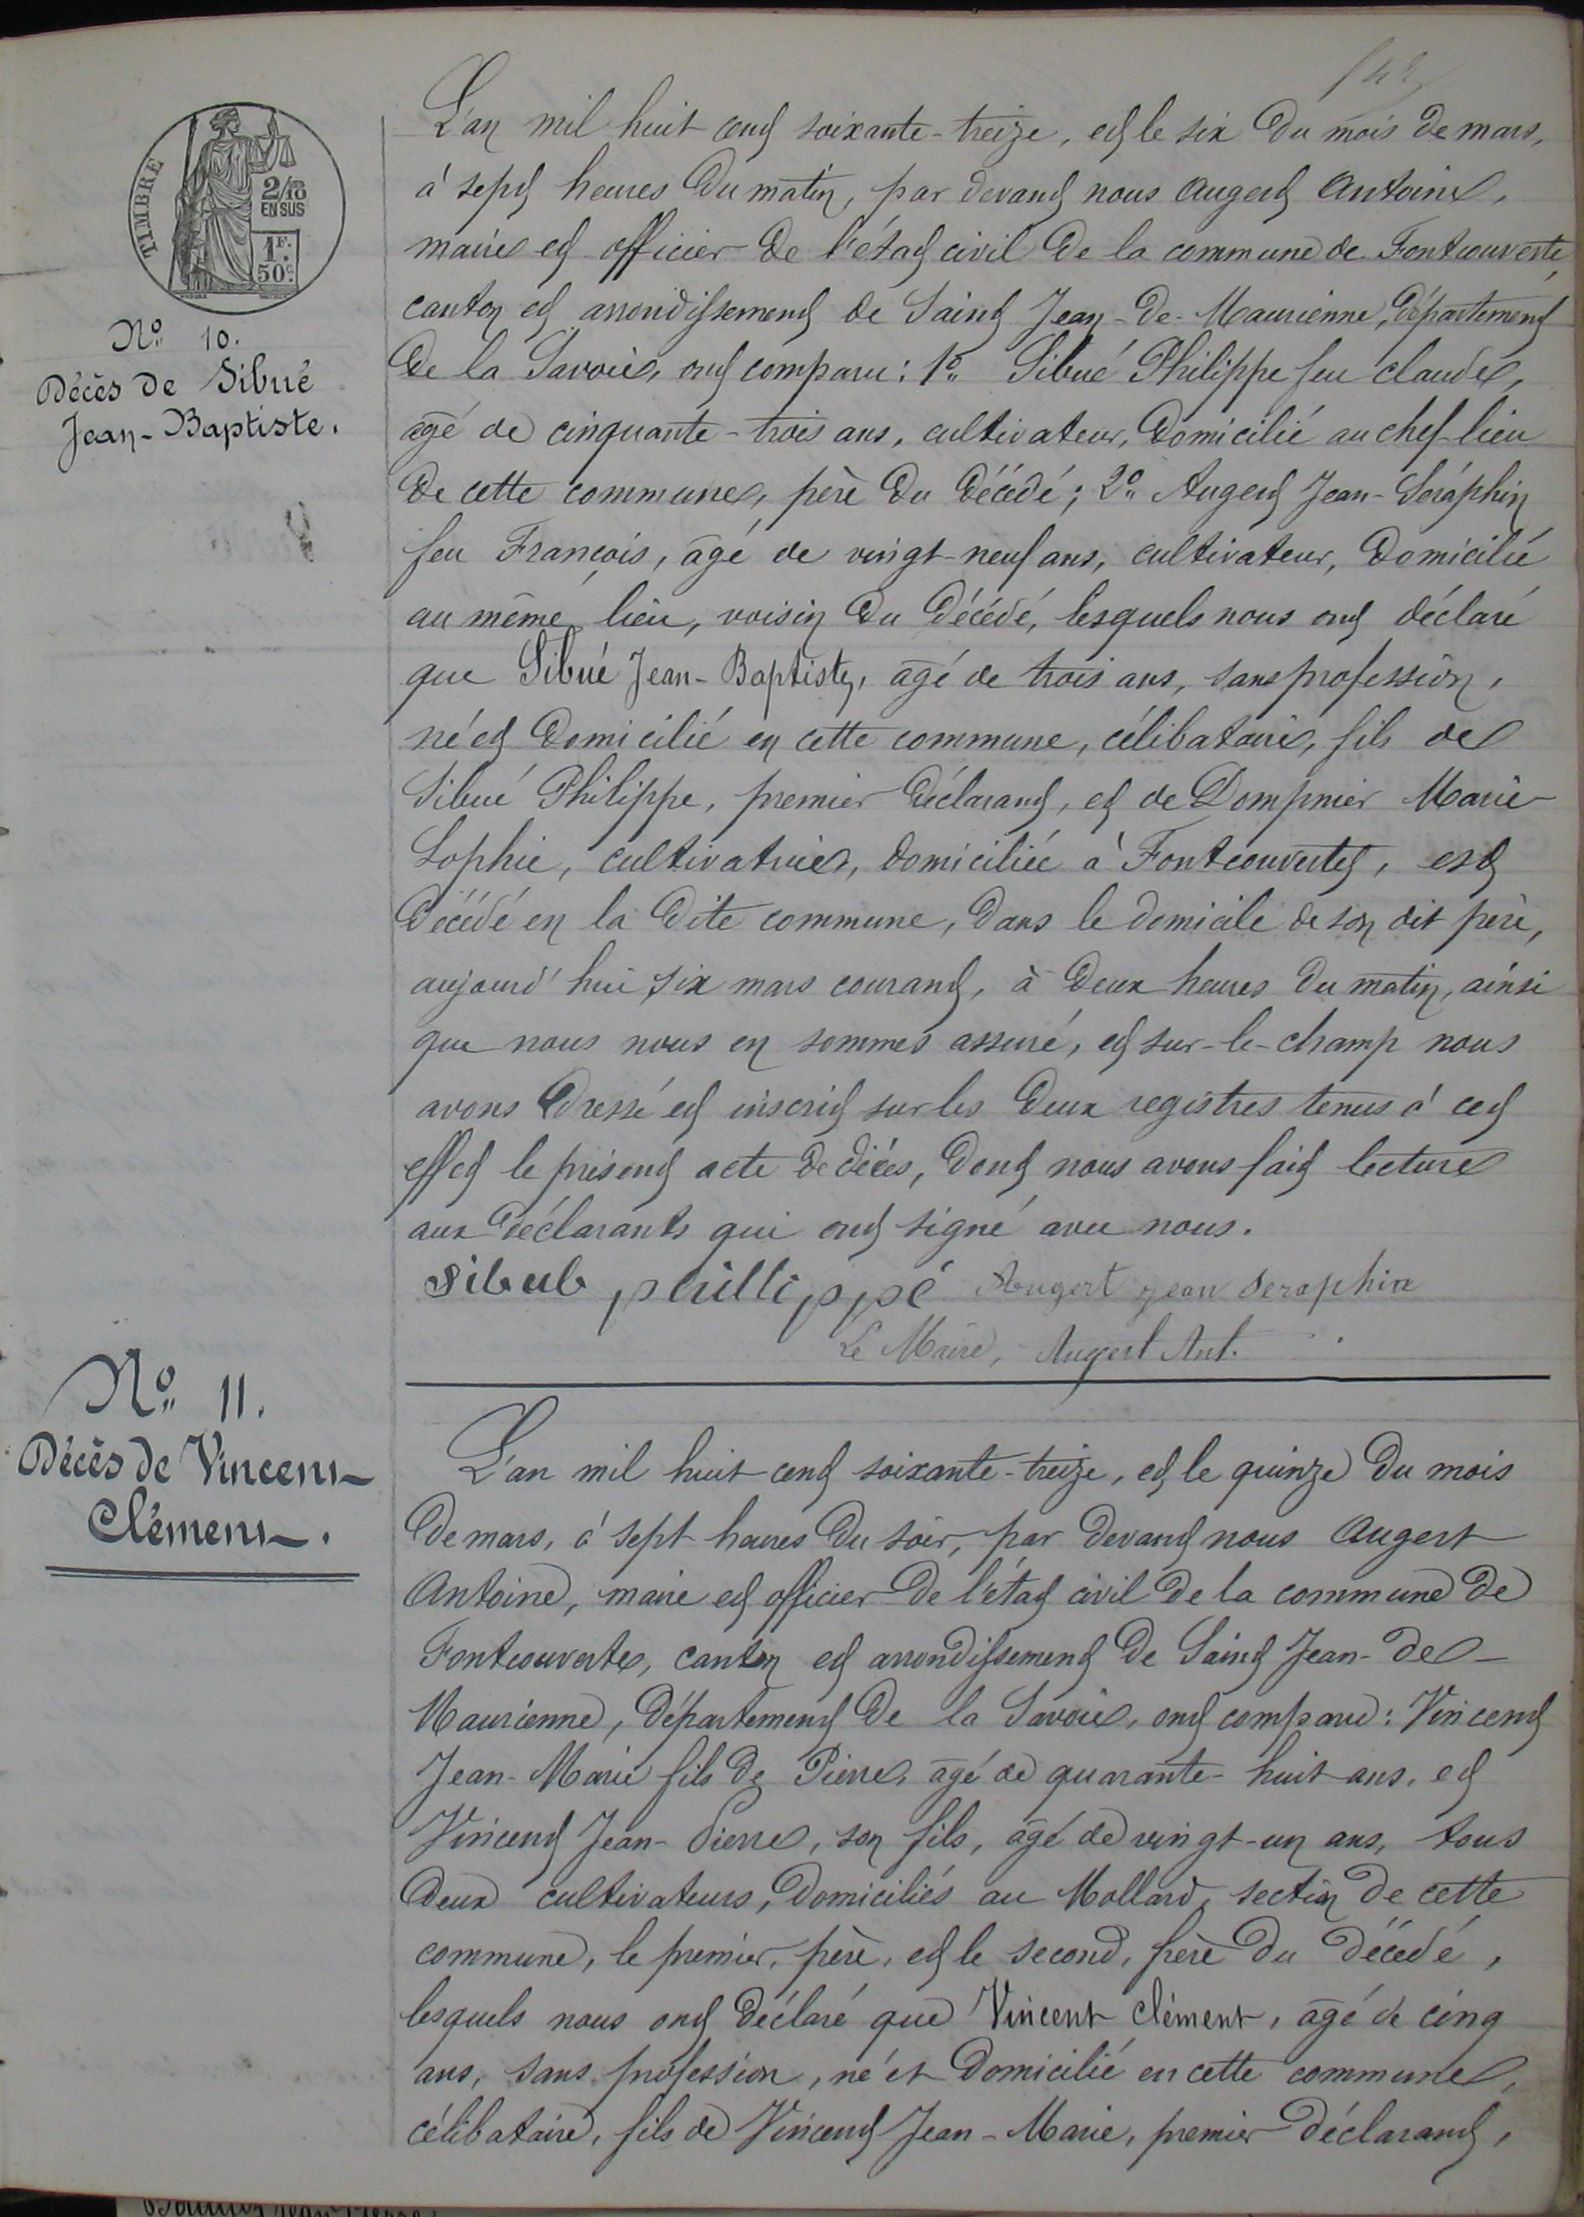 TIMBRE
2/10
EN SUS
1F.
50c.
No. 10.
Décès de Sibué
Jean-Baptiste.
L'an mil huit cent soixante-treize, et le six du mois de mars,
à sept heures du matin, par devant nous Augert Antoine,
maire et officier de l'état civil de la commune de Fontcouverte,
canton et arrondissement de Saint Jean-de-Maurienne, département
de la Savoie, ont comparu : 1o Sibué Philippe feu Claude,
âgé de cinquante-trois ans, cultivateur, domicilié au chef-lieu
de cette commune, père du décédé ; 2o Augert Jean-Séraphin
feu François, âgé de vingt-neuf ans, cultivateur, domicilié
au même lieu, voisin du décédé, lesquels nous ont déclaré
que Sibué Jean-Baptiste, âgé de trois ans, sans profession,
né et domicilié en cette commune, célibataire, fils de
Sibué Philippe, premier déclarant, et de Dompnier Marie-
Sophie, cultivatrice, domiciliée à Fontcouverte, est
décédé en la dite commune, dans le domicile de son dit père,
aujourd'hui six mars courant, à deux heures du matin, ainsi
que nous nous en sommes assuré, et sur-le-champ nous
avons dressé et inscrit sur les deux registres tenus à cet
effet le présent acte de décès, dont nous avons fait lecture
aux déclarants qui ont signé avec nous.
Augert jean Seraphin
Le Maire, Augert Ant.
No. 11.
Décès de Vincent
Clément.
L'an mil huit cent soixante-treize, et le quinze du mois
de mars, à sept heures du soir, par devant nous Augert
Antoine, maire et officier de l'état civil de la commune de
Fontcouverte, canton et arrondissement de Saint Jean-de-
Maurienne, département de la Savoie, ont comparu : Vincent
Jean-Marie fils de Pierre, âgé de quarante-huit ans, et
Vincent Jean-Pierre, son fils, âgé de vingt-un ans, tous
deux cultivateurs, domiciliés au Mollard, section de cette
commune, le premier, père, et le second, frère du décédé,
lesquels nous ont déclaré que Vincent Clément, âgé de cinq
ans, sans profession, né et domicilié en cette commune,
célibataire, fils de Vincent Jean-Marie, premier déclarant,